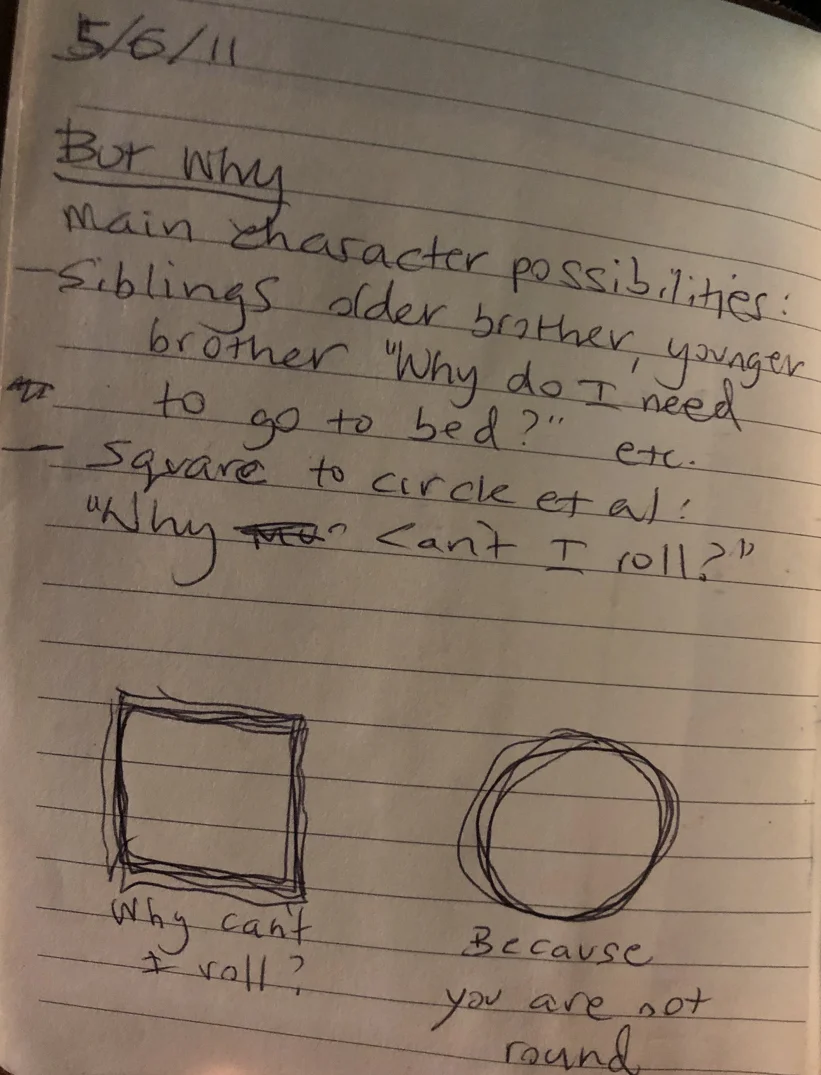 5/6/11
But Why
Main character possibilities:
- Siblings older brother, younger
brother "Why do I need
to go to bed?" etc.
- Square to circle et al:
"Why can't I roll?"
Why can't
I roll?
Because
you are not
round